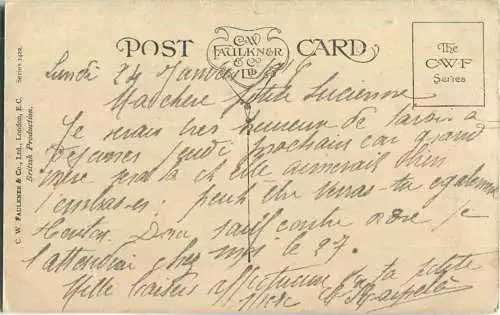 POST CARD
C.W. FAULKNER & Co LTD
The C.W.F Series
Series 1402.
C. W. FAULKNER & Co., Ltd., London, E.C.
British Production.
Lundi 24 Janvier
Ma chère petite Lucienne
Je serais très heureux de t'avoir à
déjeuner jeudi prochain car grand
mère sera là et elle aimerait bien
t'embrasser peut être verras-tu également
Donc sauf contre ordre je
t'attendrai chez moi le 27.
Mille baisers affectueux de ta petite